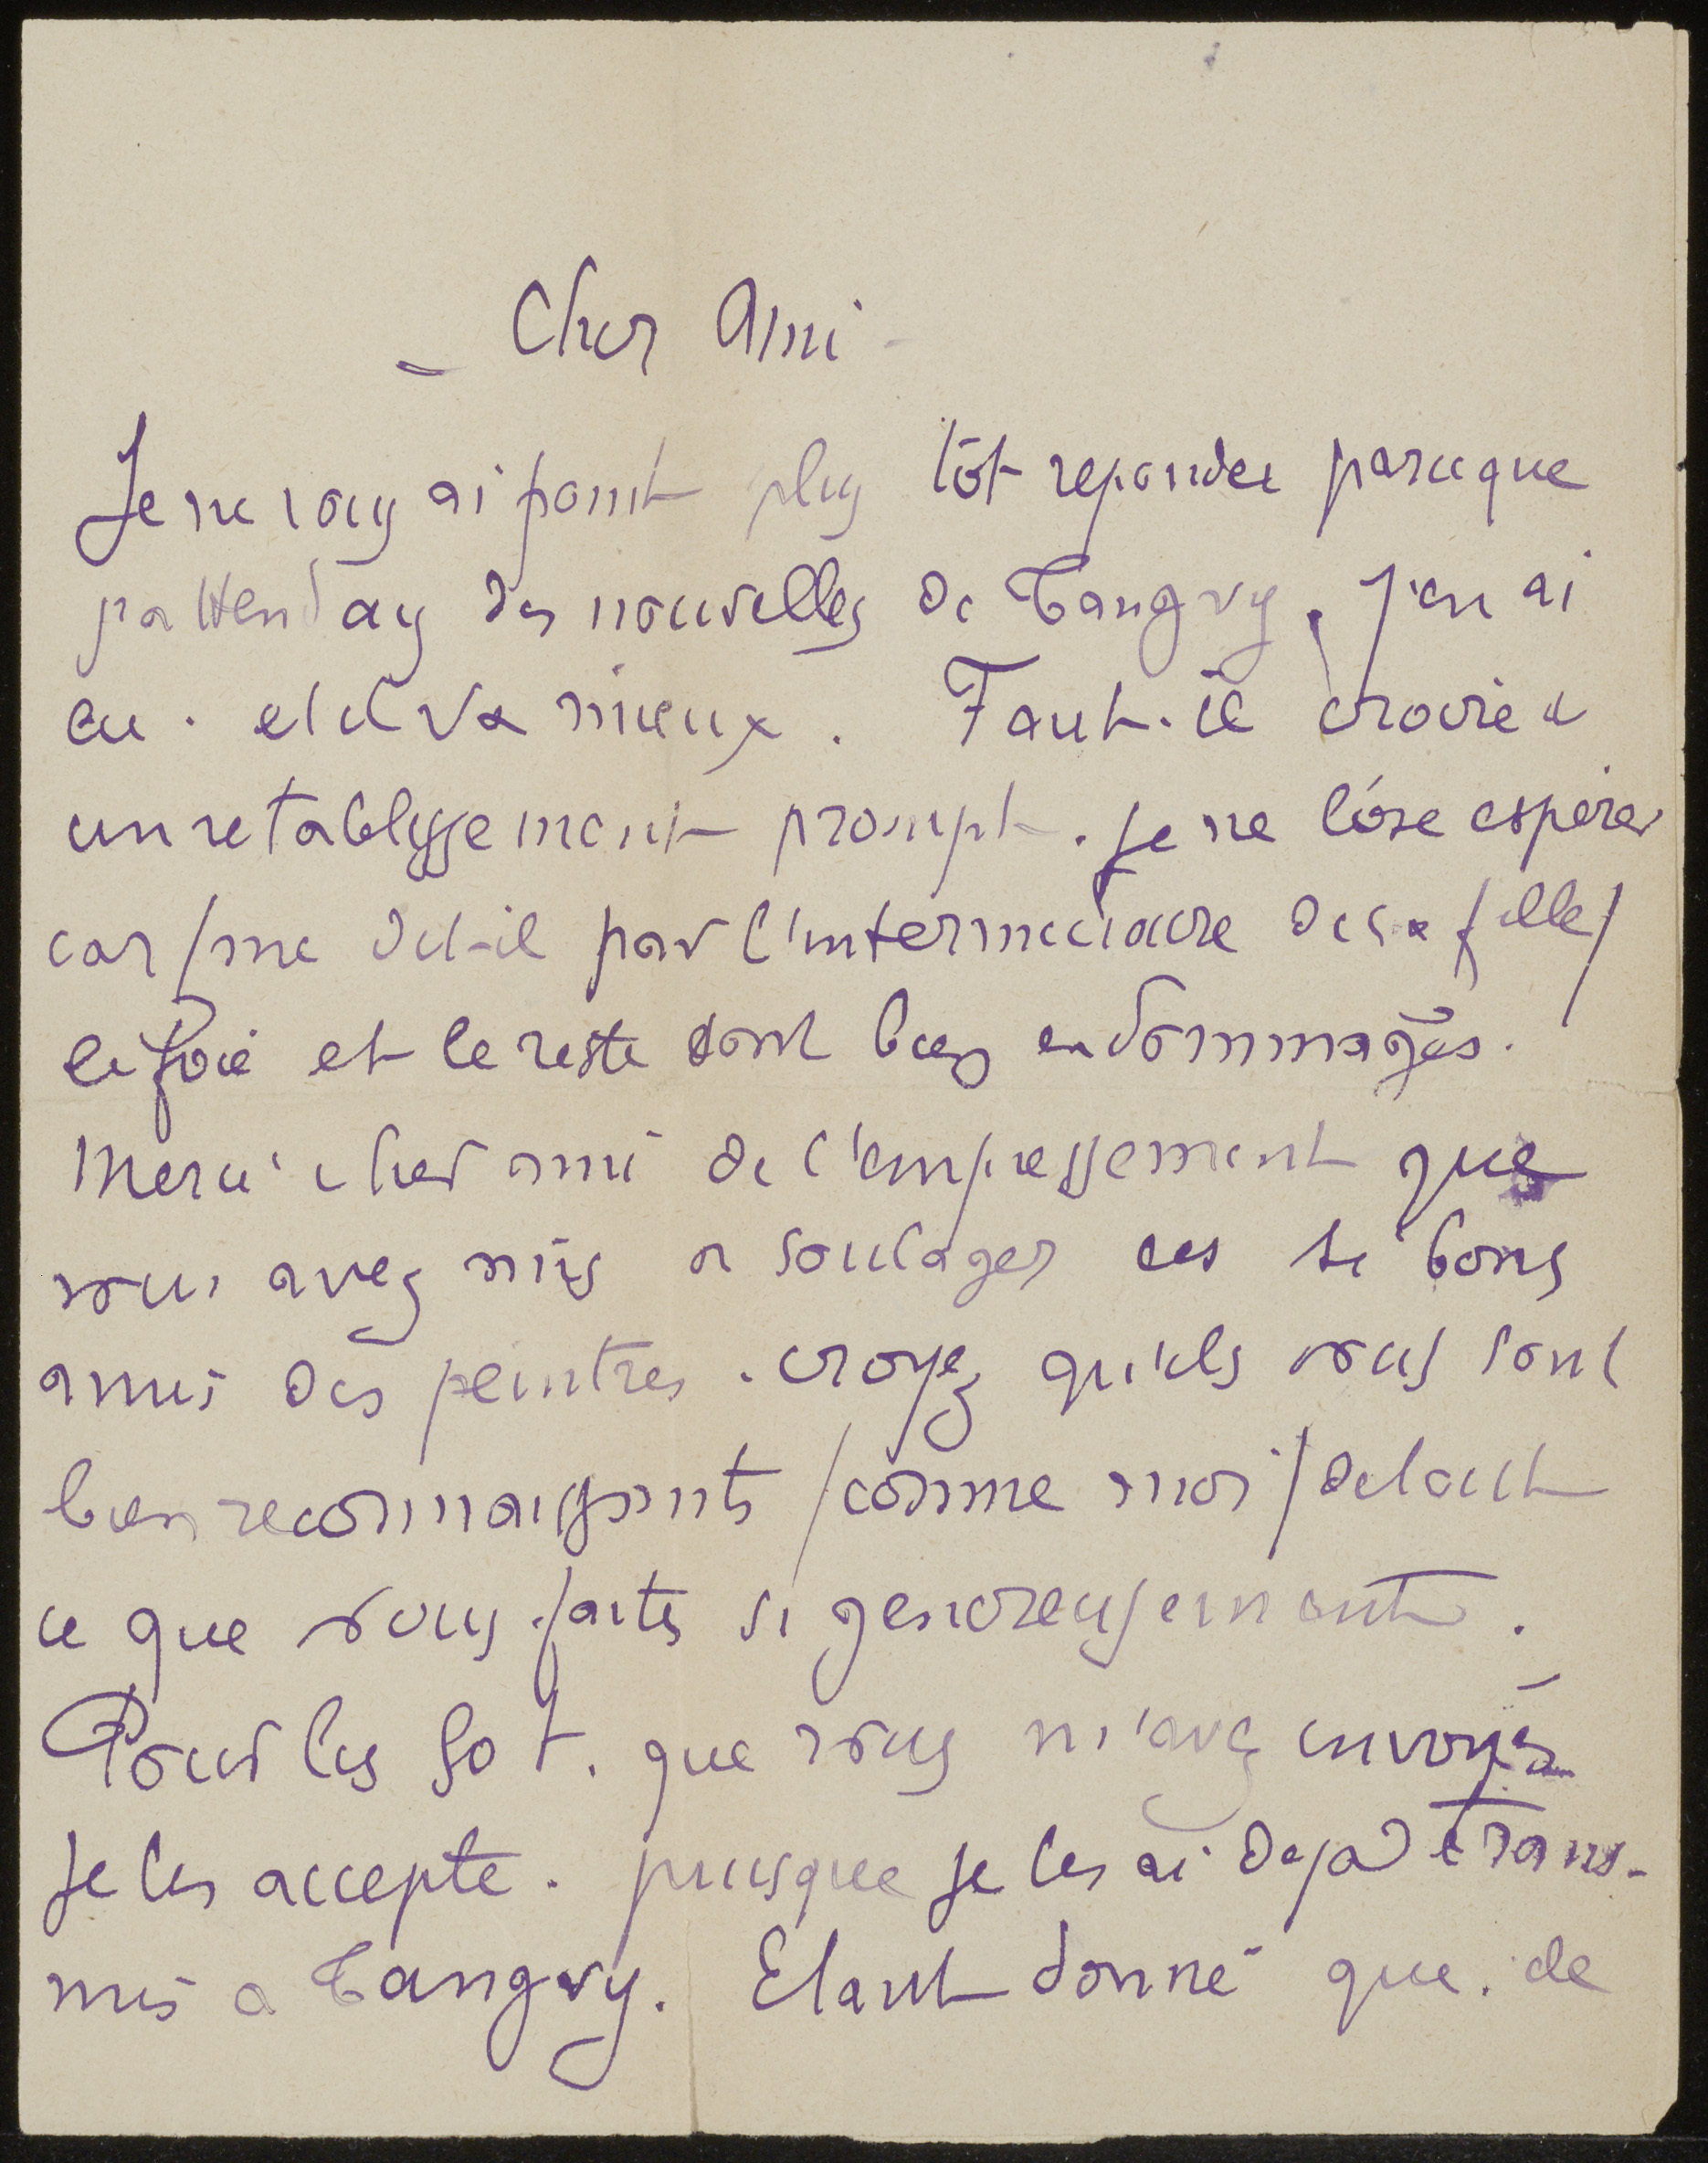 Cher Ami -
Je ne vous ai point plus tôt repondu parceque
j'attendais des nouvelles de Tanguy. J'en ai
eu. et il va mieux. Faut-il croire a
un retablissement prompt. je ne l'ose espérer
car / me dit-il par l'intermediaire de sa fille /
le foie et le reste sont bien endommagés.
Merci cher ami de l'empressement que
vous avez mis a soulager ces si bons
amis des peintres. croyez qu'ils vous sont
bien reconnaissants / comme moi / de tout
ce que vous faites si genereusement.
Pour les 50 f. que vous m'avez envoyés
je les accepte. puisque je les ai deja trans-
mis a Tanguy. Etant donné que. de